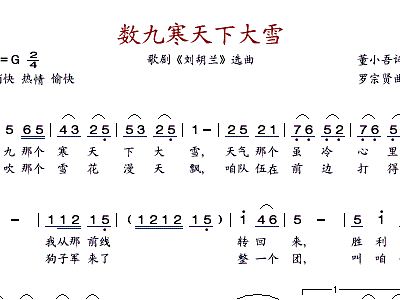 数九寒天下大雪
=G 2/4 歌剧《刘胡兰》选曲 董小吾
快 热情 愉快 罗宗贤曲
5 65 | 43 25 | 23 25 | 1 – | 15 65 | 76 52 | 76 5
九 那个 寒 天 下 大 雪, 天气 那个 虽 冷 心 里
吹 那个 雪 花 漫 天 飘, 咱队 伍在 前 边 打 得
– | 112 15 | (1212 15) | 1 46 | 5 – | 51
我从那 前线 转 回 来, 胜 利
狗子军 来了 整 一个 团, 叫 咱
1